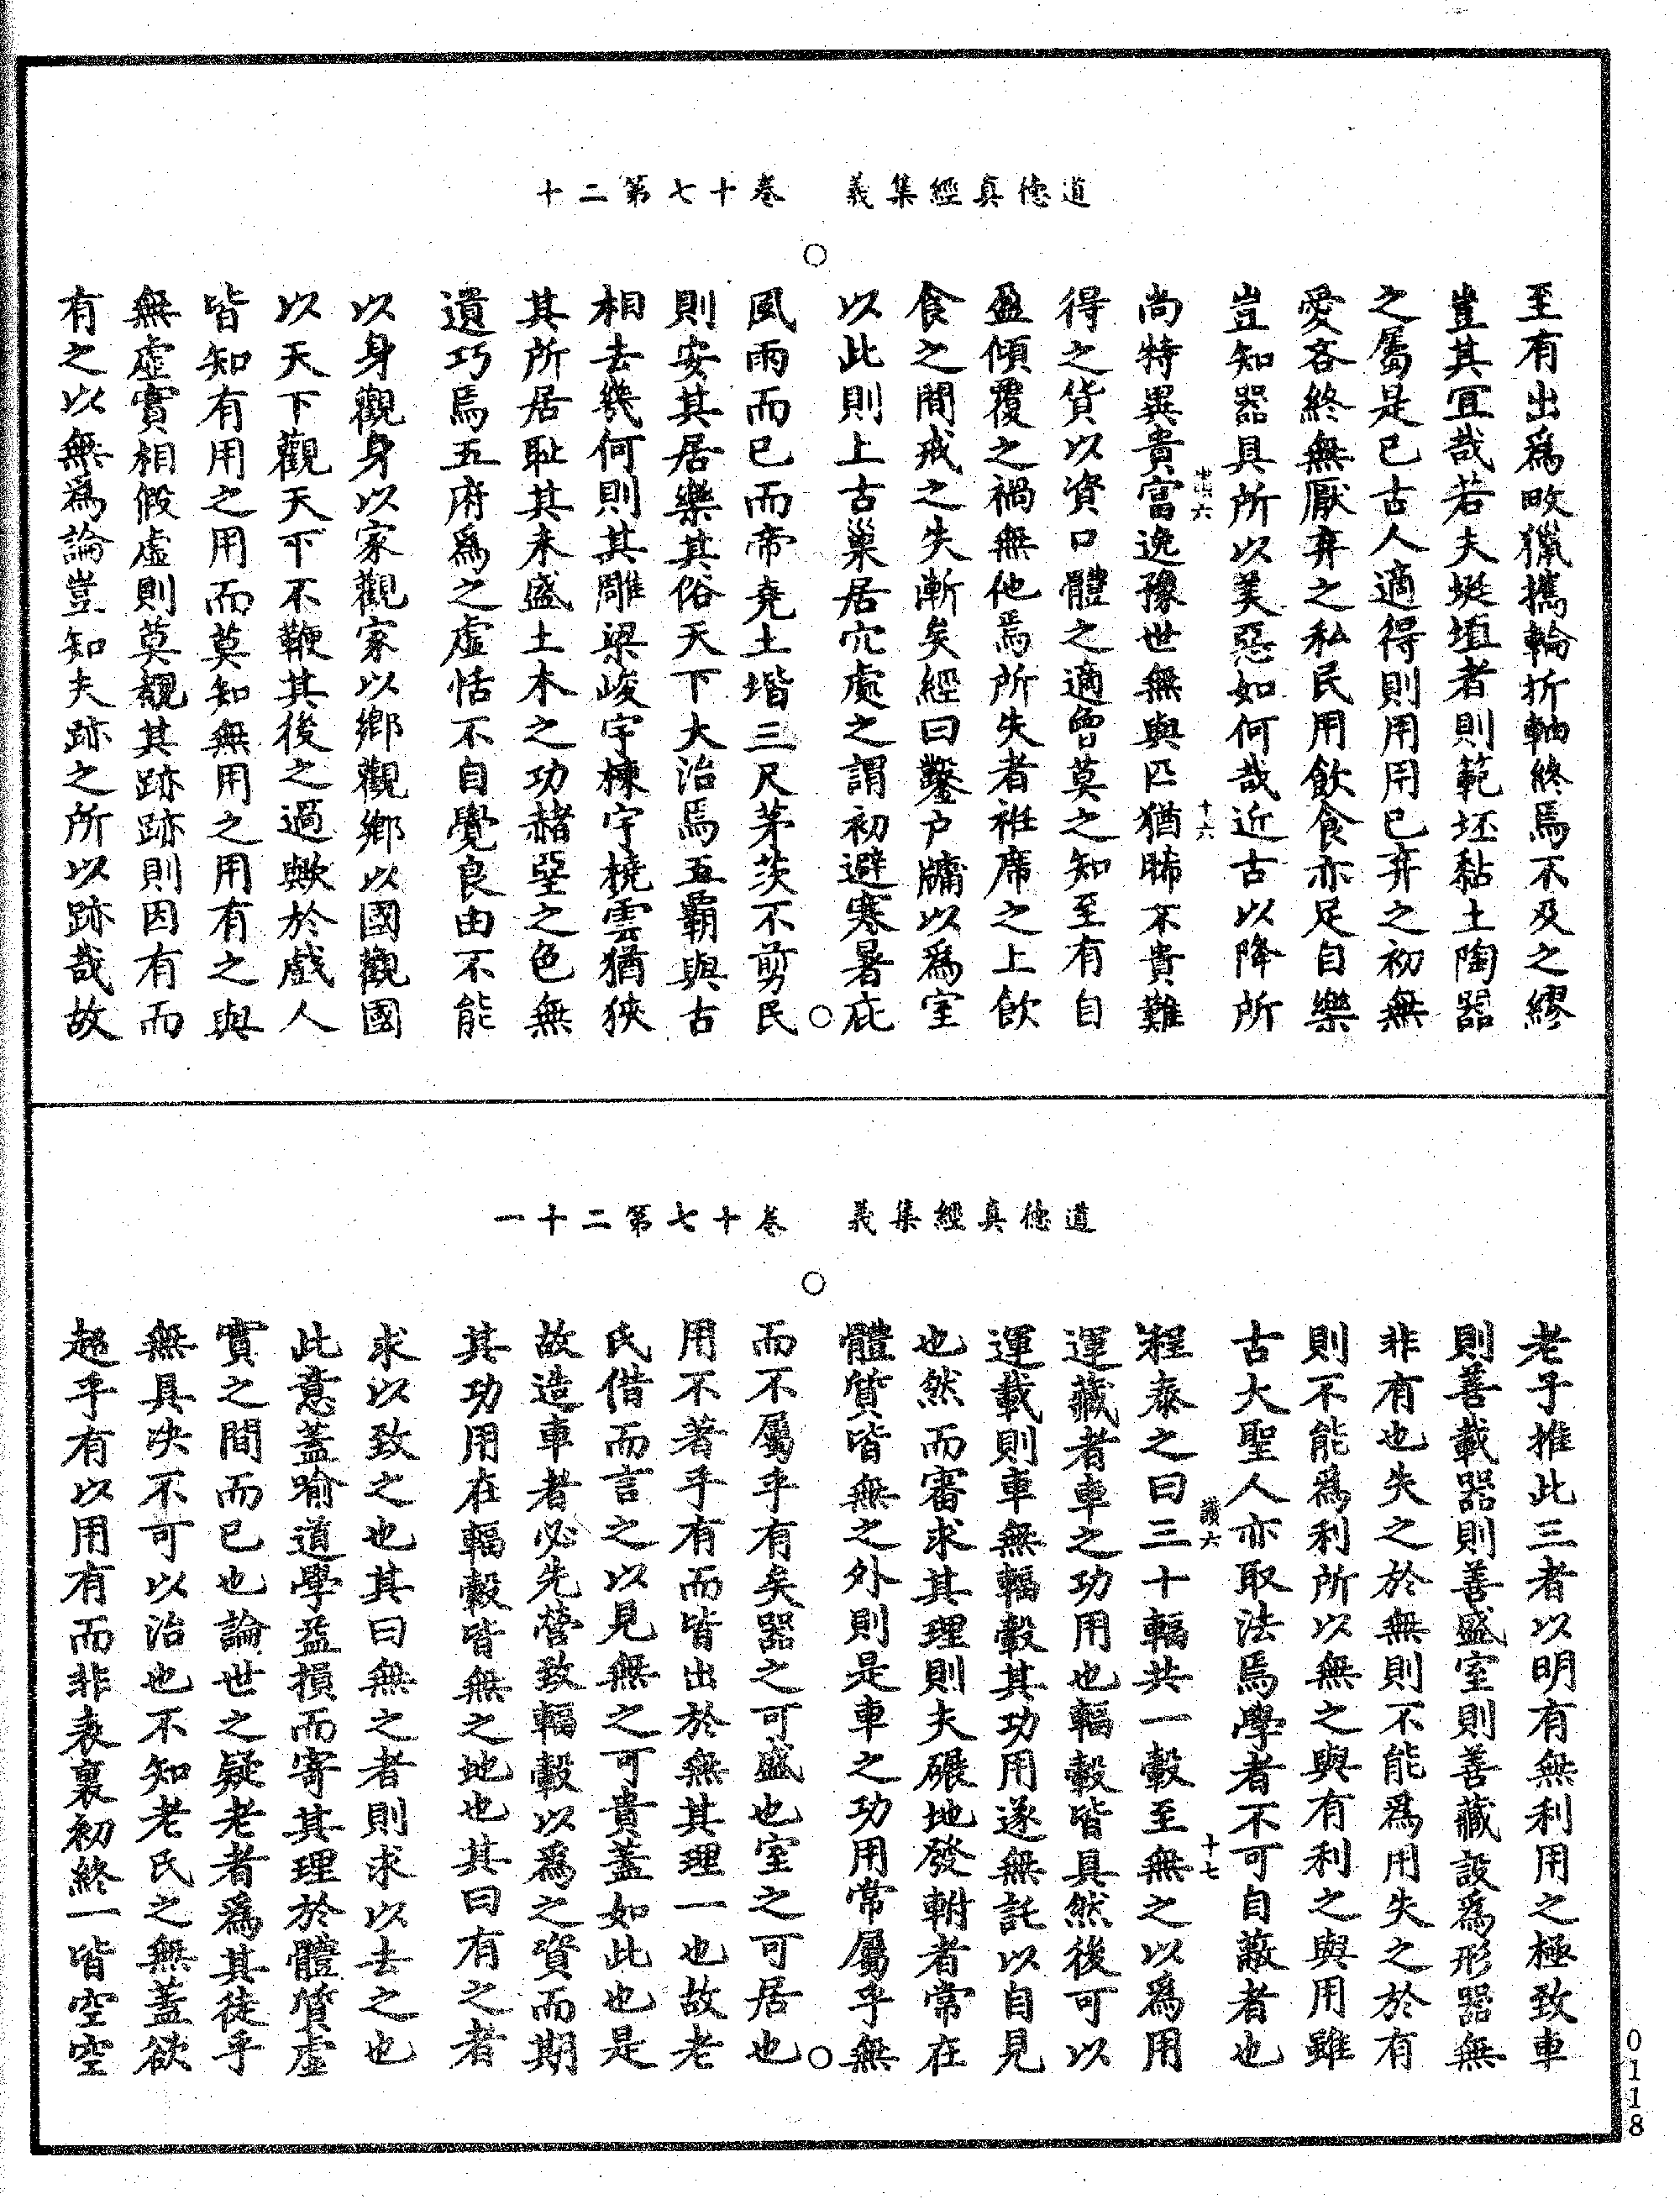 道德真經集義　卷十七第二十
至有出爲畋獵攜輪折軸終焉不及之繆
豈其宜哉若夫埏埴者則範坯黏土陶器
之屬是已古人適得則用用已弃之初無
愛吝終無厭弃之私民用飲食亦足自樂
豈知器具所以美惡如何哉近古以降所
尚特異貴富逸豫世無與匹猶睎不貴難
得之貨以資口體之適曾莫之知至有自
盈傾覆之禍無他焉所失者袵席之上飲
食之間戒之失漸矣經曰鑿户牖以爲室
以此則上古巢居穴處之謂初避寒暑庇
風雨而已而帝堯土堦三尺茅茨不剪民
則安其居樂其俗天下大治焉五霸與古
相去幾何則其雕梁峻宇棟宇橈雲猶狹
其所居耻其未盛土木之功赭堊之色無
遺巧焉五府爲之虛恬不自覺良由不能
以身觀身以家觀家以鄉觀鄉以國觀國
以天下觀天下不鞭其後之過歟於戲人
皆知有用之用而莫知無用之用有之與
無虛實相假虛則莫覩其跡跡則因有而
有之以無爲論豈知夫跡之所以跡哉故
十六
道德真經集義　卷十七第二十一
老子推此三者以明有無利用之極致車
則善載器則善盛室則善藏設爲形器無
非有也失之於無則不能爲用失之於有
則不能爲利所以無之與有利之與用雖
古大聖人亦取法焉學者不可自蔽者也
程泰之曰三十輻共一轂至無之以爲用
運藏者車之功用也輻轂皆具然後可以
運載則車無輻轂其功用遂無託以自見
也然而審求其理則夫碾地發軵者常在
體質皆無之外則是車之功用常屬乎無
而不屬乎有矣器之可盛也室之可居也
用不著乎有而皆出於無其理一也故老
氏借而言之以見無之可貴蓋如此也是
故造車者必先營致輻轂以爲之資而期
其功用在輻轂皆無之地也其曰有之者
求以致之也其曰無之者則求以去之也
此意蓋喻道學益損而寄其理於體質虛
實之間而已也論世之疑老者爲其徒乎
無具決不可以治也不知老氏之無蓋欲
超乎有以用有而非表裏初終一皆空空
十七
0118